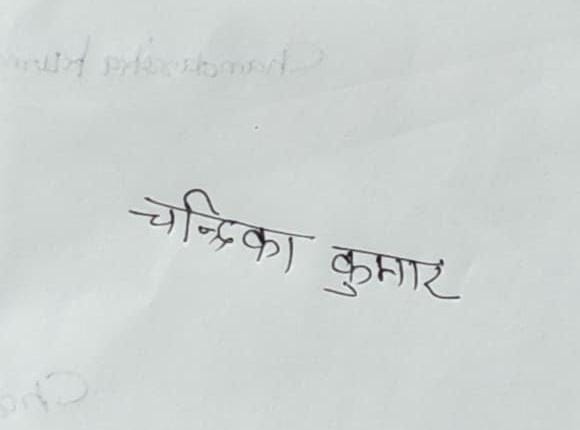 चन्द्रिका कुमार